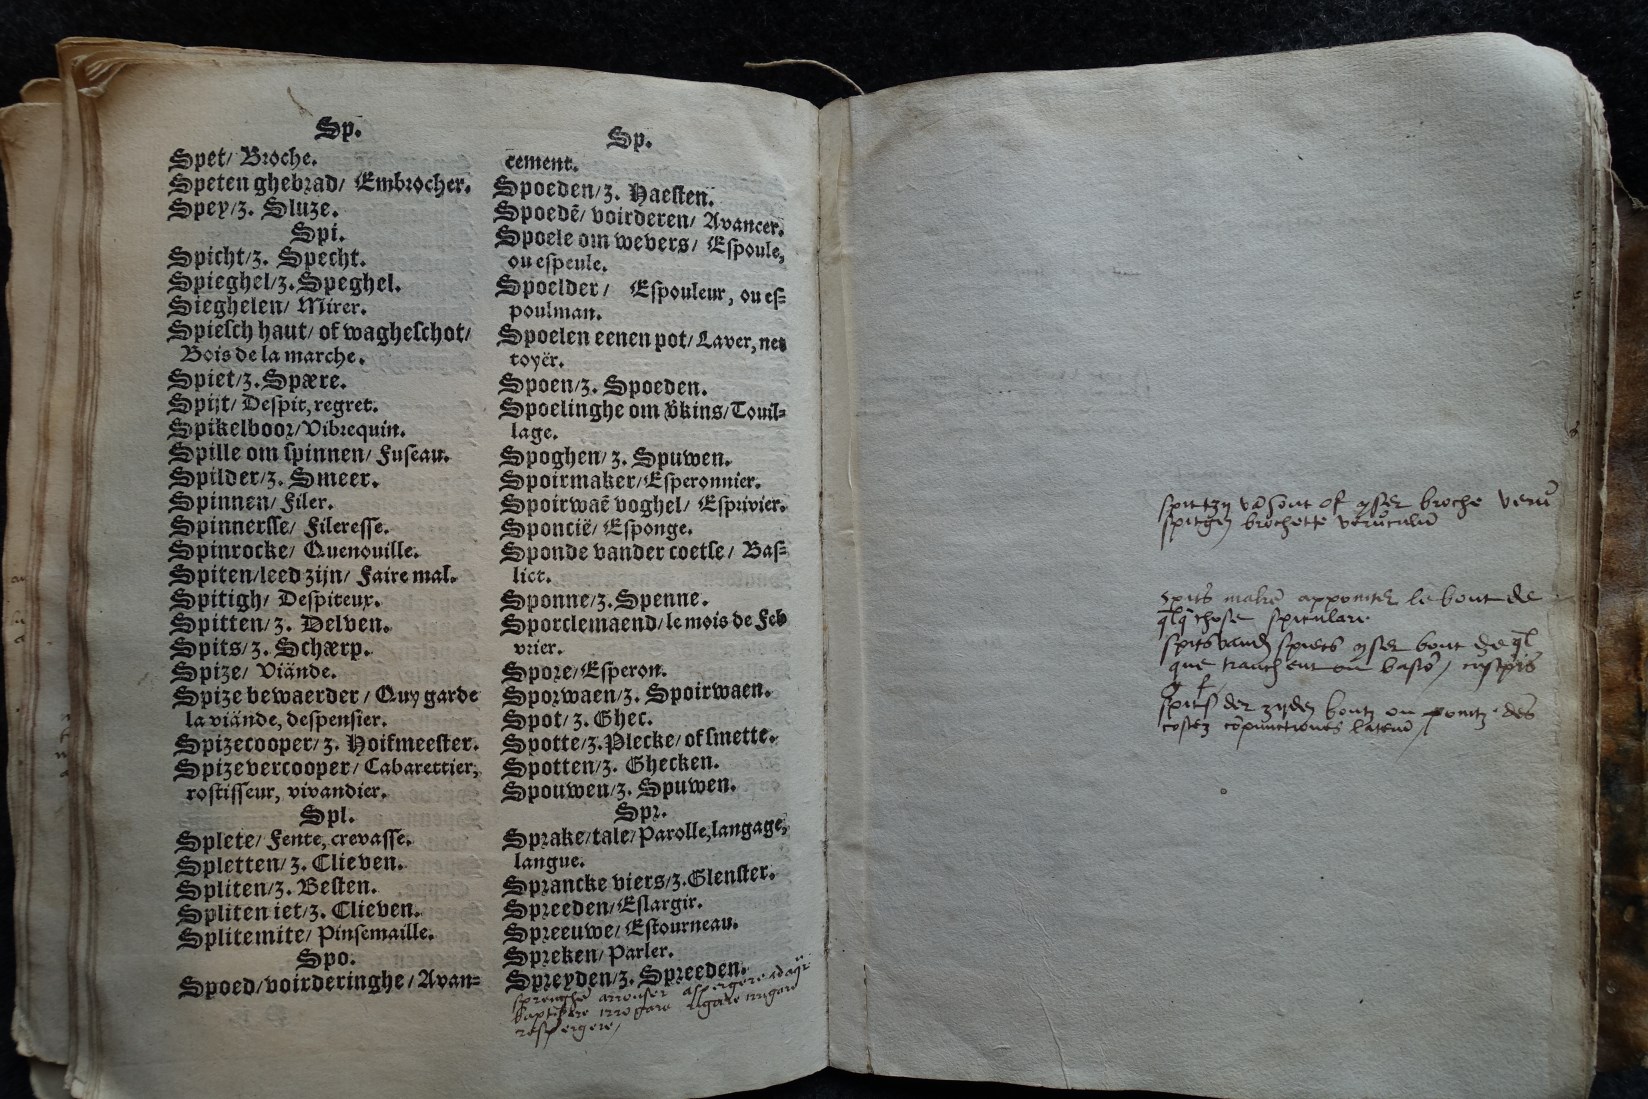 Sp.
Spet/ Broche.
Speten ghebrad/ Embrocher.
Spey/z. Sluze.
Spi.
Spicht/z. Specht.
Spieghel/z. Speghel.
Sieghelen/ Mirer.
Spiesch haut/ of wagheschot/
Bois de la marche.
Spiet/z. Spære.
Spijt/ Despit, regret.
Spikelboor/ Vibrequin.
Spille om spinnen/ Fuseau.
Spilder/z. Smeer.
Spinnen/ Filer.
Spinnersse/ Fileresse.
Spinrocke/ Quenouille.
Spiten/leed zijn/ Faire mal.
Spitigh/ Despiteux.
Spitten/ z. Delven.
Spits/z. Schærp.
Spize/ Viānde.
Spize bewaerder/ Quy garde
la viānde, despensier.
Spizecooper/z. Hoifmeester.
Spizevercooper/ Cabarettier,
rostisseur, vivandier.
Spl.
Splete/ Fente, crevasse.
Spletten/z. Clieven.
Spliten/z. Besten.
Spliten iet/z. Clieven.
Splitemite/ Pinsemaille.
Spo.
Spoed/voirderinghe/ Avan=
Sp.
cement.
Spoeden/z. Haesten.
Spoedē/ voirderen/ Avancer.
Spoele om wevers/ Espoule,
ou espeule.
Spoelder/ Espouleur, ou es=
poulman.
Spoelen eenen pot/ Laver, net
toyër.
Spoen/z. Spoeden.
Spoelinghe om v̄kins/ Touil=
lage.
Spoghen/ z. Spuwen.
Spoirmaker/ Esperonnier.
Spoirwaē voghel/ Esprivier.
Sponcië/ Esponge.
Sponde vander coetse/ Bas=
lict.
Sponne/z. Spenne.
Sporclemaend/ le mois de Feb
vrier.
Spore/ Esperon.
Sporwaen/z. Spoirwaen.
Spot/ z. Ghec.
Spotte/z. Plecke/ of smette.
Spotten/z. Ghecken.
Spouwen/z. Spuwen.
Spr.
Sprake/tale/ Parolle, langage,
langue.
Sprancke viers/z. Glenster.
Spreeden/ Eslargir.
Spreeuwe/ Estourneau.
Spreken/ Parler.
Spreyden/z. Spreeden.
arrouser aspergere
baptizere irrogare ligare irrigare
respergere/
of yser broche
brochette
appointer le bout de
chose spiculare
spiets yser bout de
que
bout ou
costez